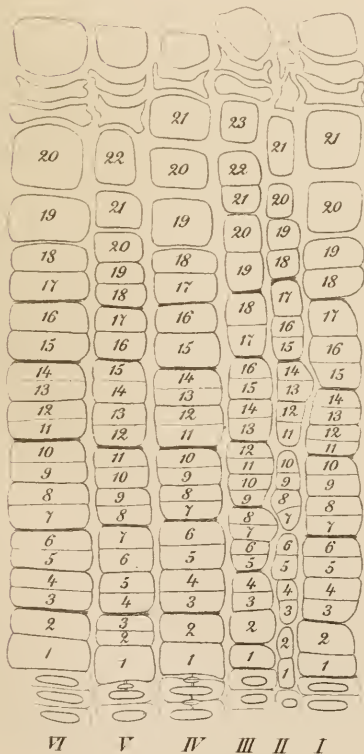 20 19 18 17 16 15 14 13 12 11 10 9 8 7 6 5 4 3 2 1
22 21 20 19 18 17 16 15 14 13 12 11 10 9 8 7 6 5 4 3 2 1
21 20 19 18 17 16 15 14 13 12 11 10 9 8 7 6 5 4 3 2 1
23 22 21 20 19 18 17 16 15 14 13 12 11 10 9 8 7 6 5 4 3 2 1
21 20 19 18 17 16 15 14 13 12 11 10 9 8 7 6 5 4 3 2 1
21 20 19 18 17 16 15 14 13 12 11 10 9 8 7 6 5 4 3 2 1
VI V IV III II I